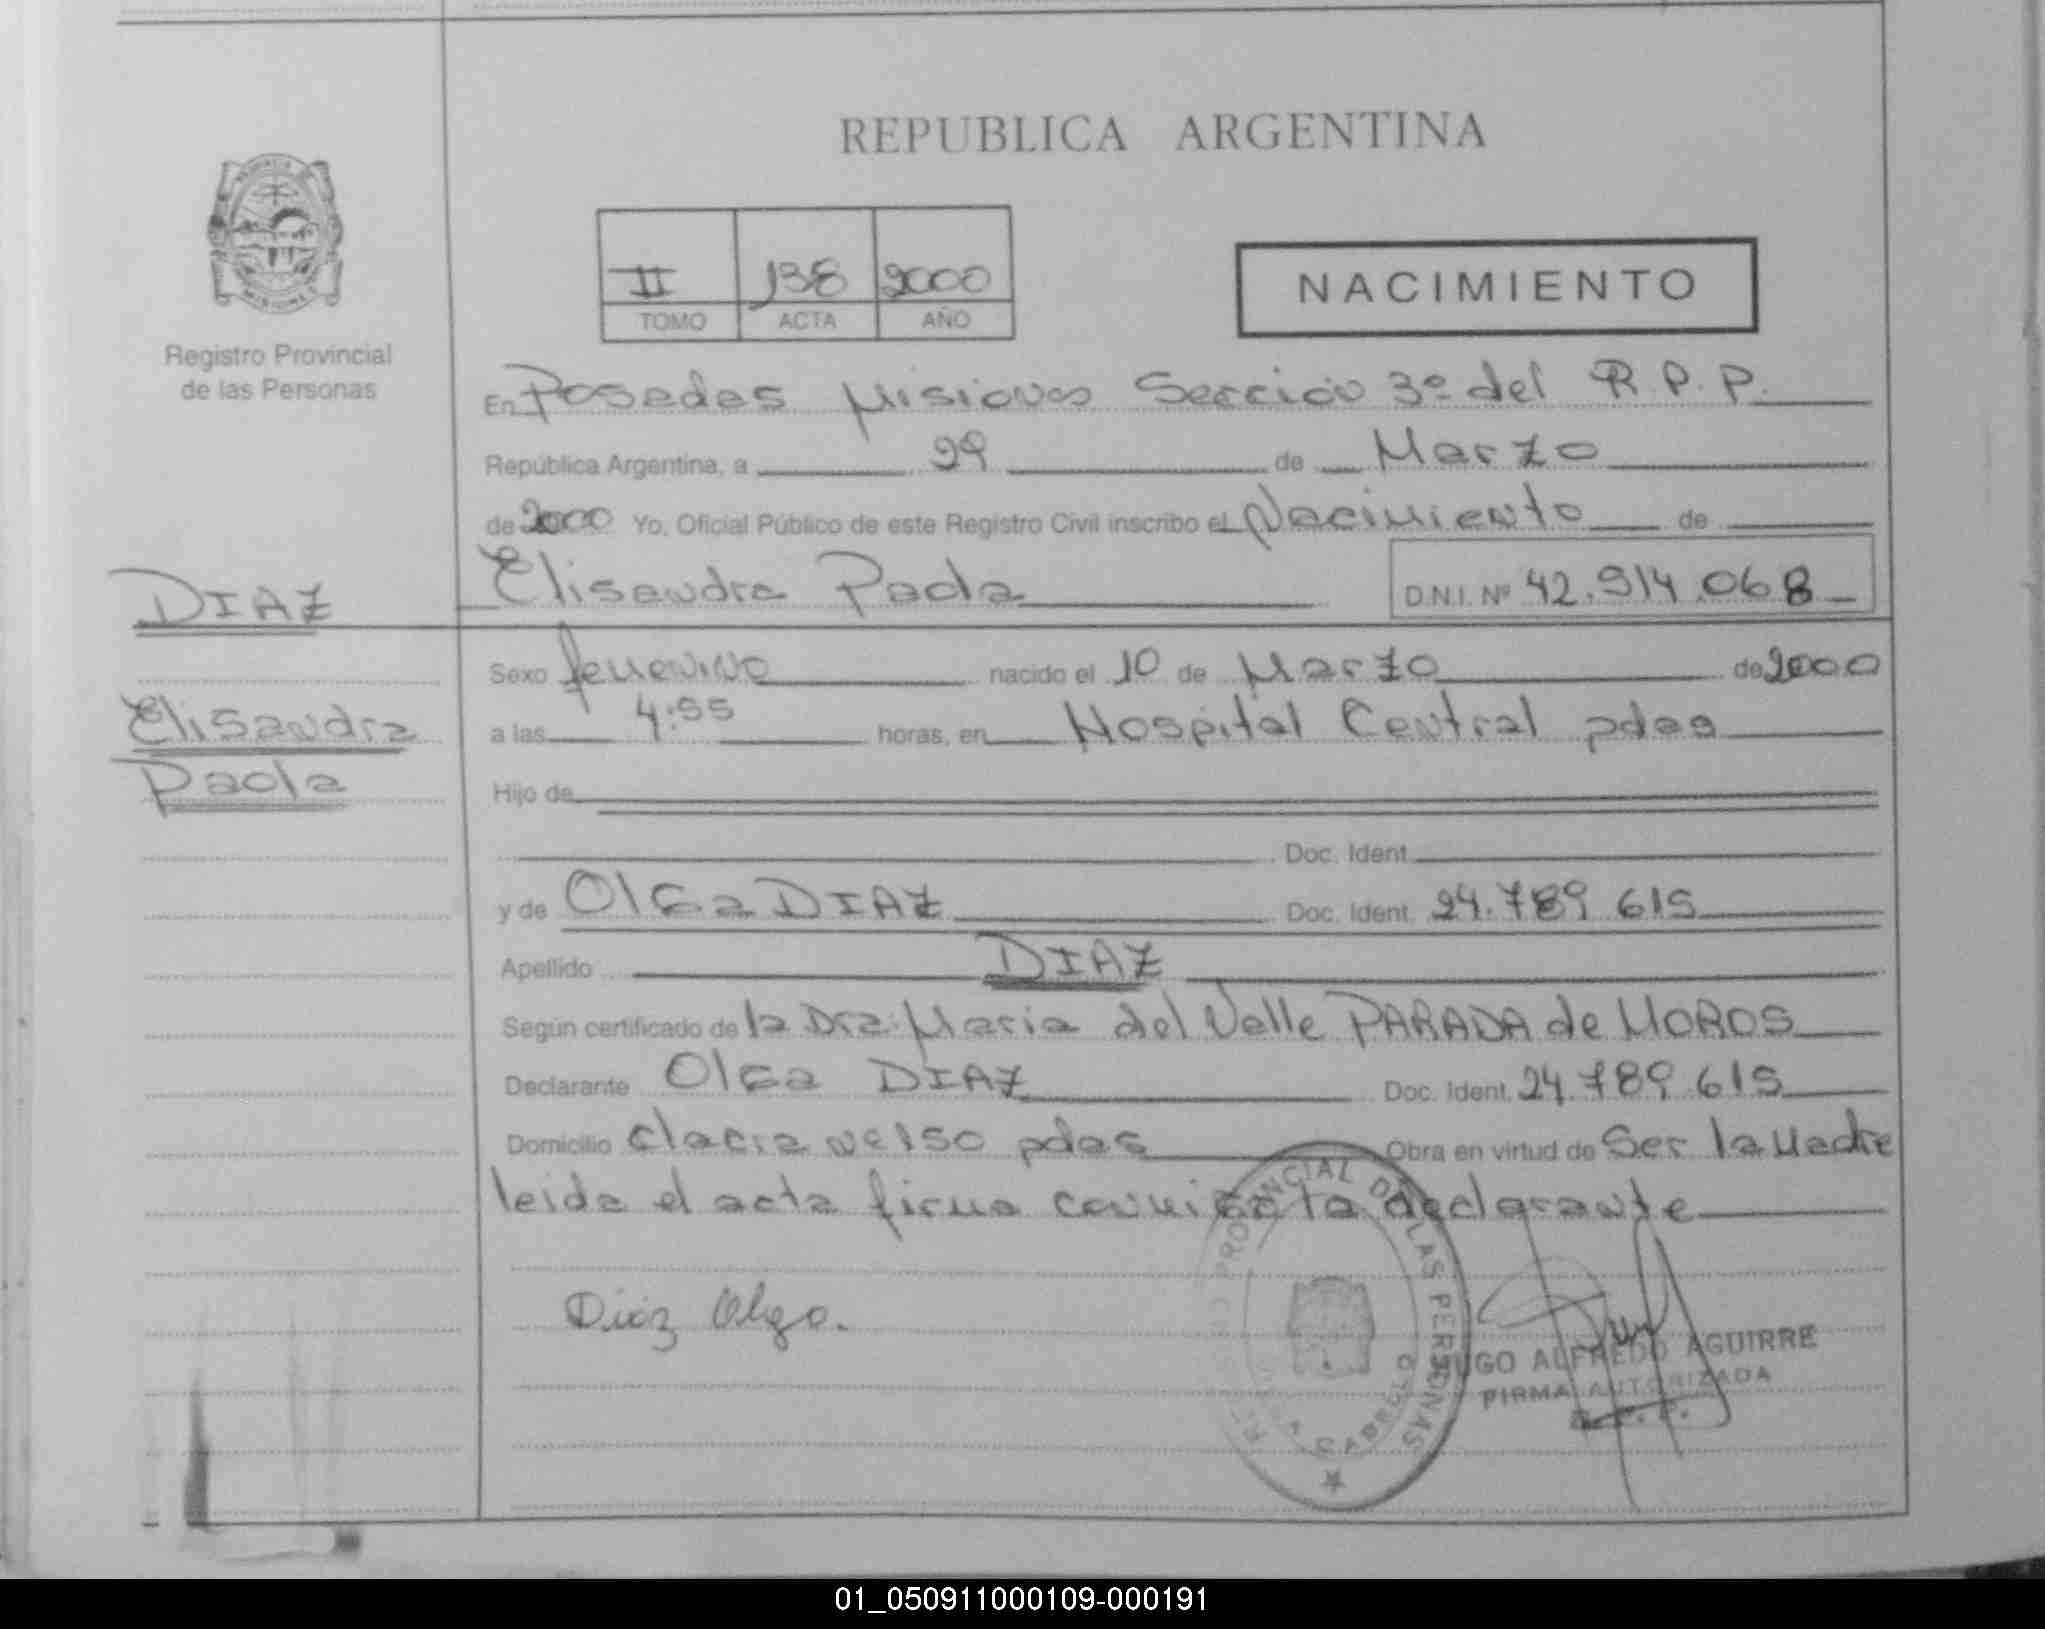 REPUBLICA ARGENTINA
II 138 2000
TOMO ACTA AÑO
NACIMIENTO
Registro Provincial
de las Personas
En Posadas Misiones Sección 3º del R.P.P.
República Argentina, a 29 de Marzo
de 2000 Yo, Oficial Público de este Registro Civil inscribo el Nacimiento de
Elisandra Paola D.N.I. Nº 42.914.068
DIAZ
Elisandra
Paola
Sexo femenino nacido el 10 de Marzo de 2000
a las 4:55 horas, en Hospital Central pdas
Hijo de
Doc. Ident.
y de Olga DIAZ Doc. Ident. 24.789.615
Apellido DIAZ
Según certificado de la Dra. Maria del Valle PARADA de MOROS
Declarante Olga DIAZ Doc. Ident. 24.789.615
Domicilio chacra pdas Obra en virtud de Ser la Madre
leida el acta firma conmigo la declarante
Diaz Olga.
PROVINCIAL DE LAS PERSONAS
HUGO ALFREDO AGUIRRE
FIRMA AUTORIZADA
01_050911000109-000191